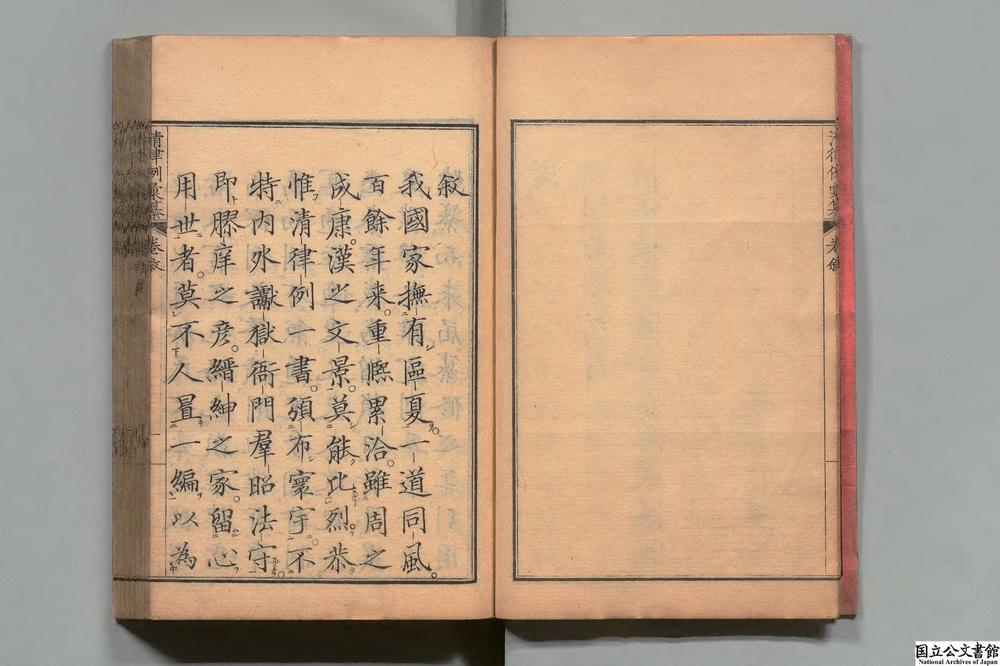 敘
我國家撫有區夏一道同風。
百餘年來。重熈累洽。雖周之
成康。漢之文景。莫能比烈。恭
惟清律例一書。頒布寰宇。不
特内外讞獄衙門羣昭法守。
即膠庠之彦。縉紳之家。留心
用世者。莫不人置一編以為
清律例彙纂
卷敘
国立公文書館
National Archives of Japan